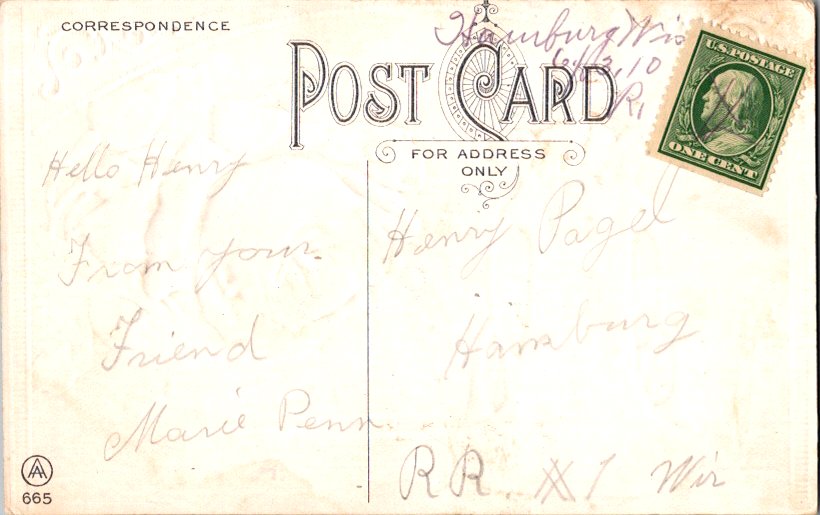 CORRESPONDENCE
POST CARD
FOR ADDRESS
ONLY
Hamburg Wis
10
R,
U.S. POSTAGE
ONE CENT
Hello Henry
From your
Friend
Marie Penn
Henry Pagel
Hamburg
RR 1 Wis
AA
665